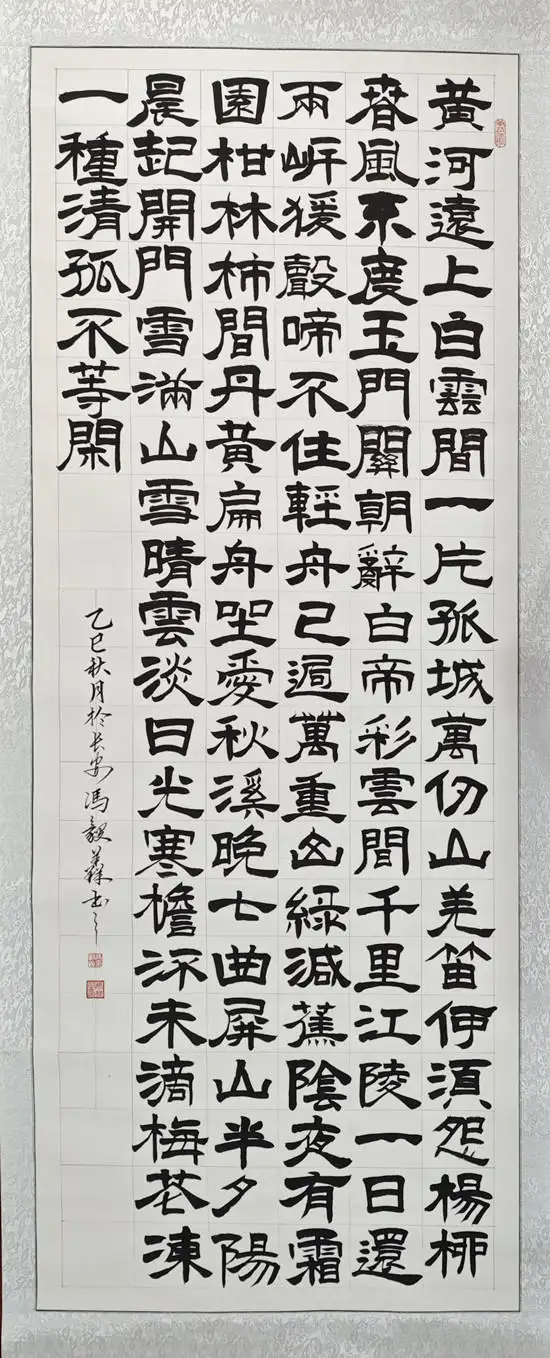 黃河遠上白雲間一片孤城萬仞山羌笛伊須怨楊柳
春風不度玉門關朝辭白帝彩雲間千里江陵一日還
兩岸猿聲啼不住輕舟已過萬重山綠減蕉陰夜有霜
園柑林柿間丹黃扁舟坐愛秋溪晚七曲屏山半夕陽
晨起開門雪滿山雪晴雲淡日光寒檐流未滴梅花凍
一種清孤不等閑
乙巳秋月於長安馮毅書之